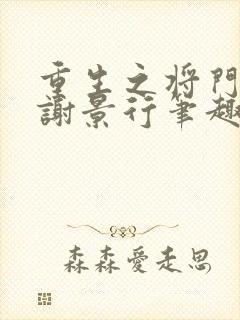 重生之将門
謝景行笔趣
森森愛走思